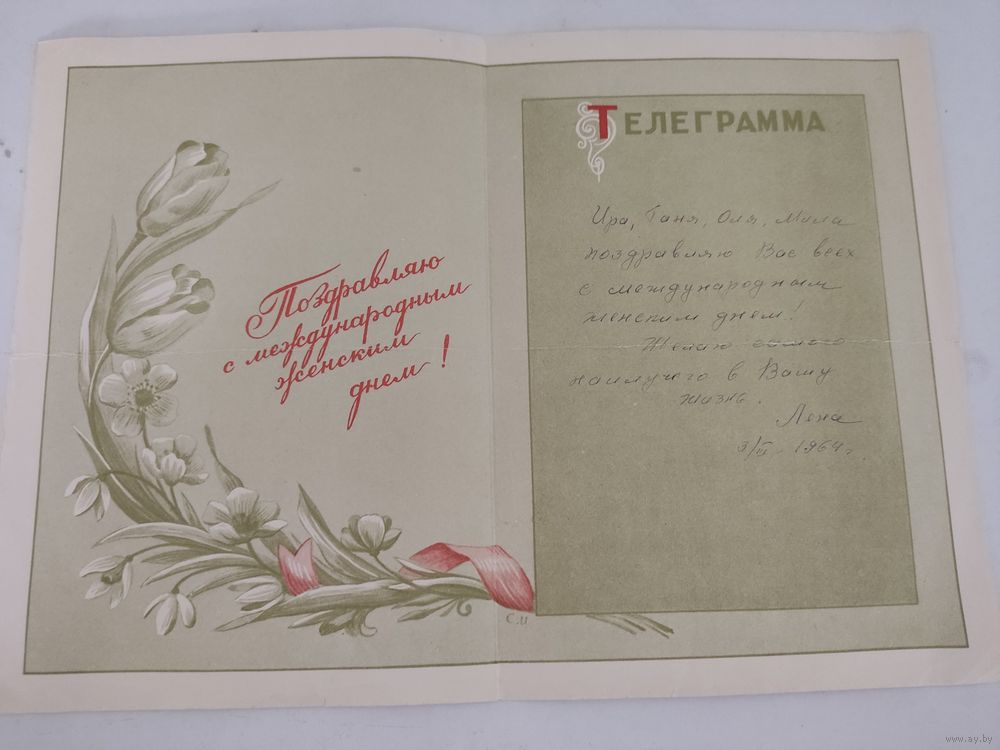 Поздравляю
с международным
женским
днем!
С.М
ТЕЛЕГРАММА
Ира, Таня, Оля, Мила
поздравляю Вас всех
с международным
женским днем!
Желаю самого
наилучего в Вашу
жизнь.
Лена
3/III - 1964 г.
www.ay.by